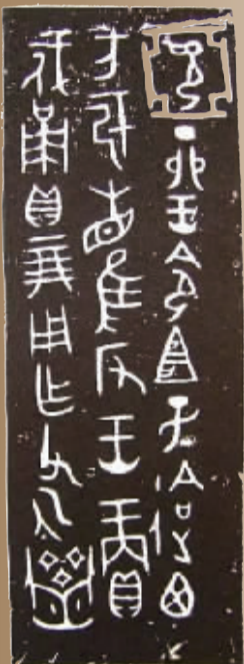 丁卯王令宜子迨西方
于省隹反王賞
戍甬貝二朋用乍父乙齍